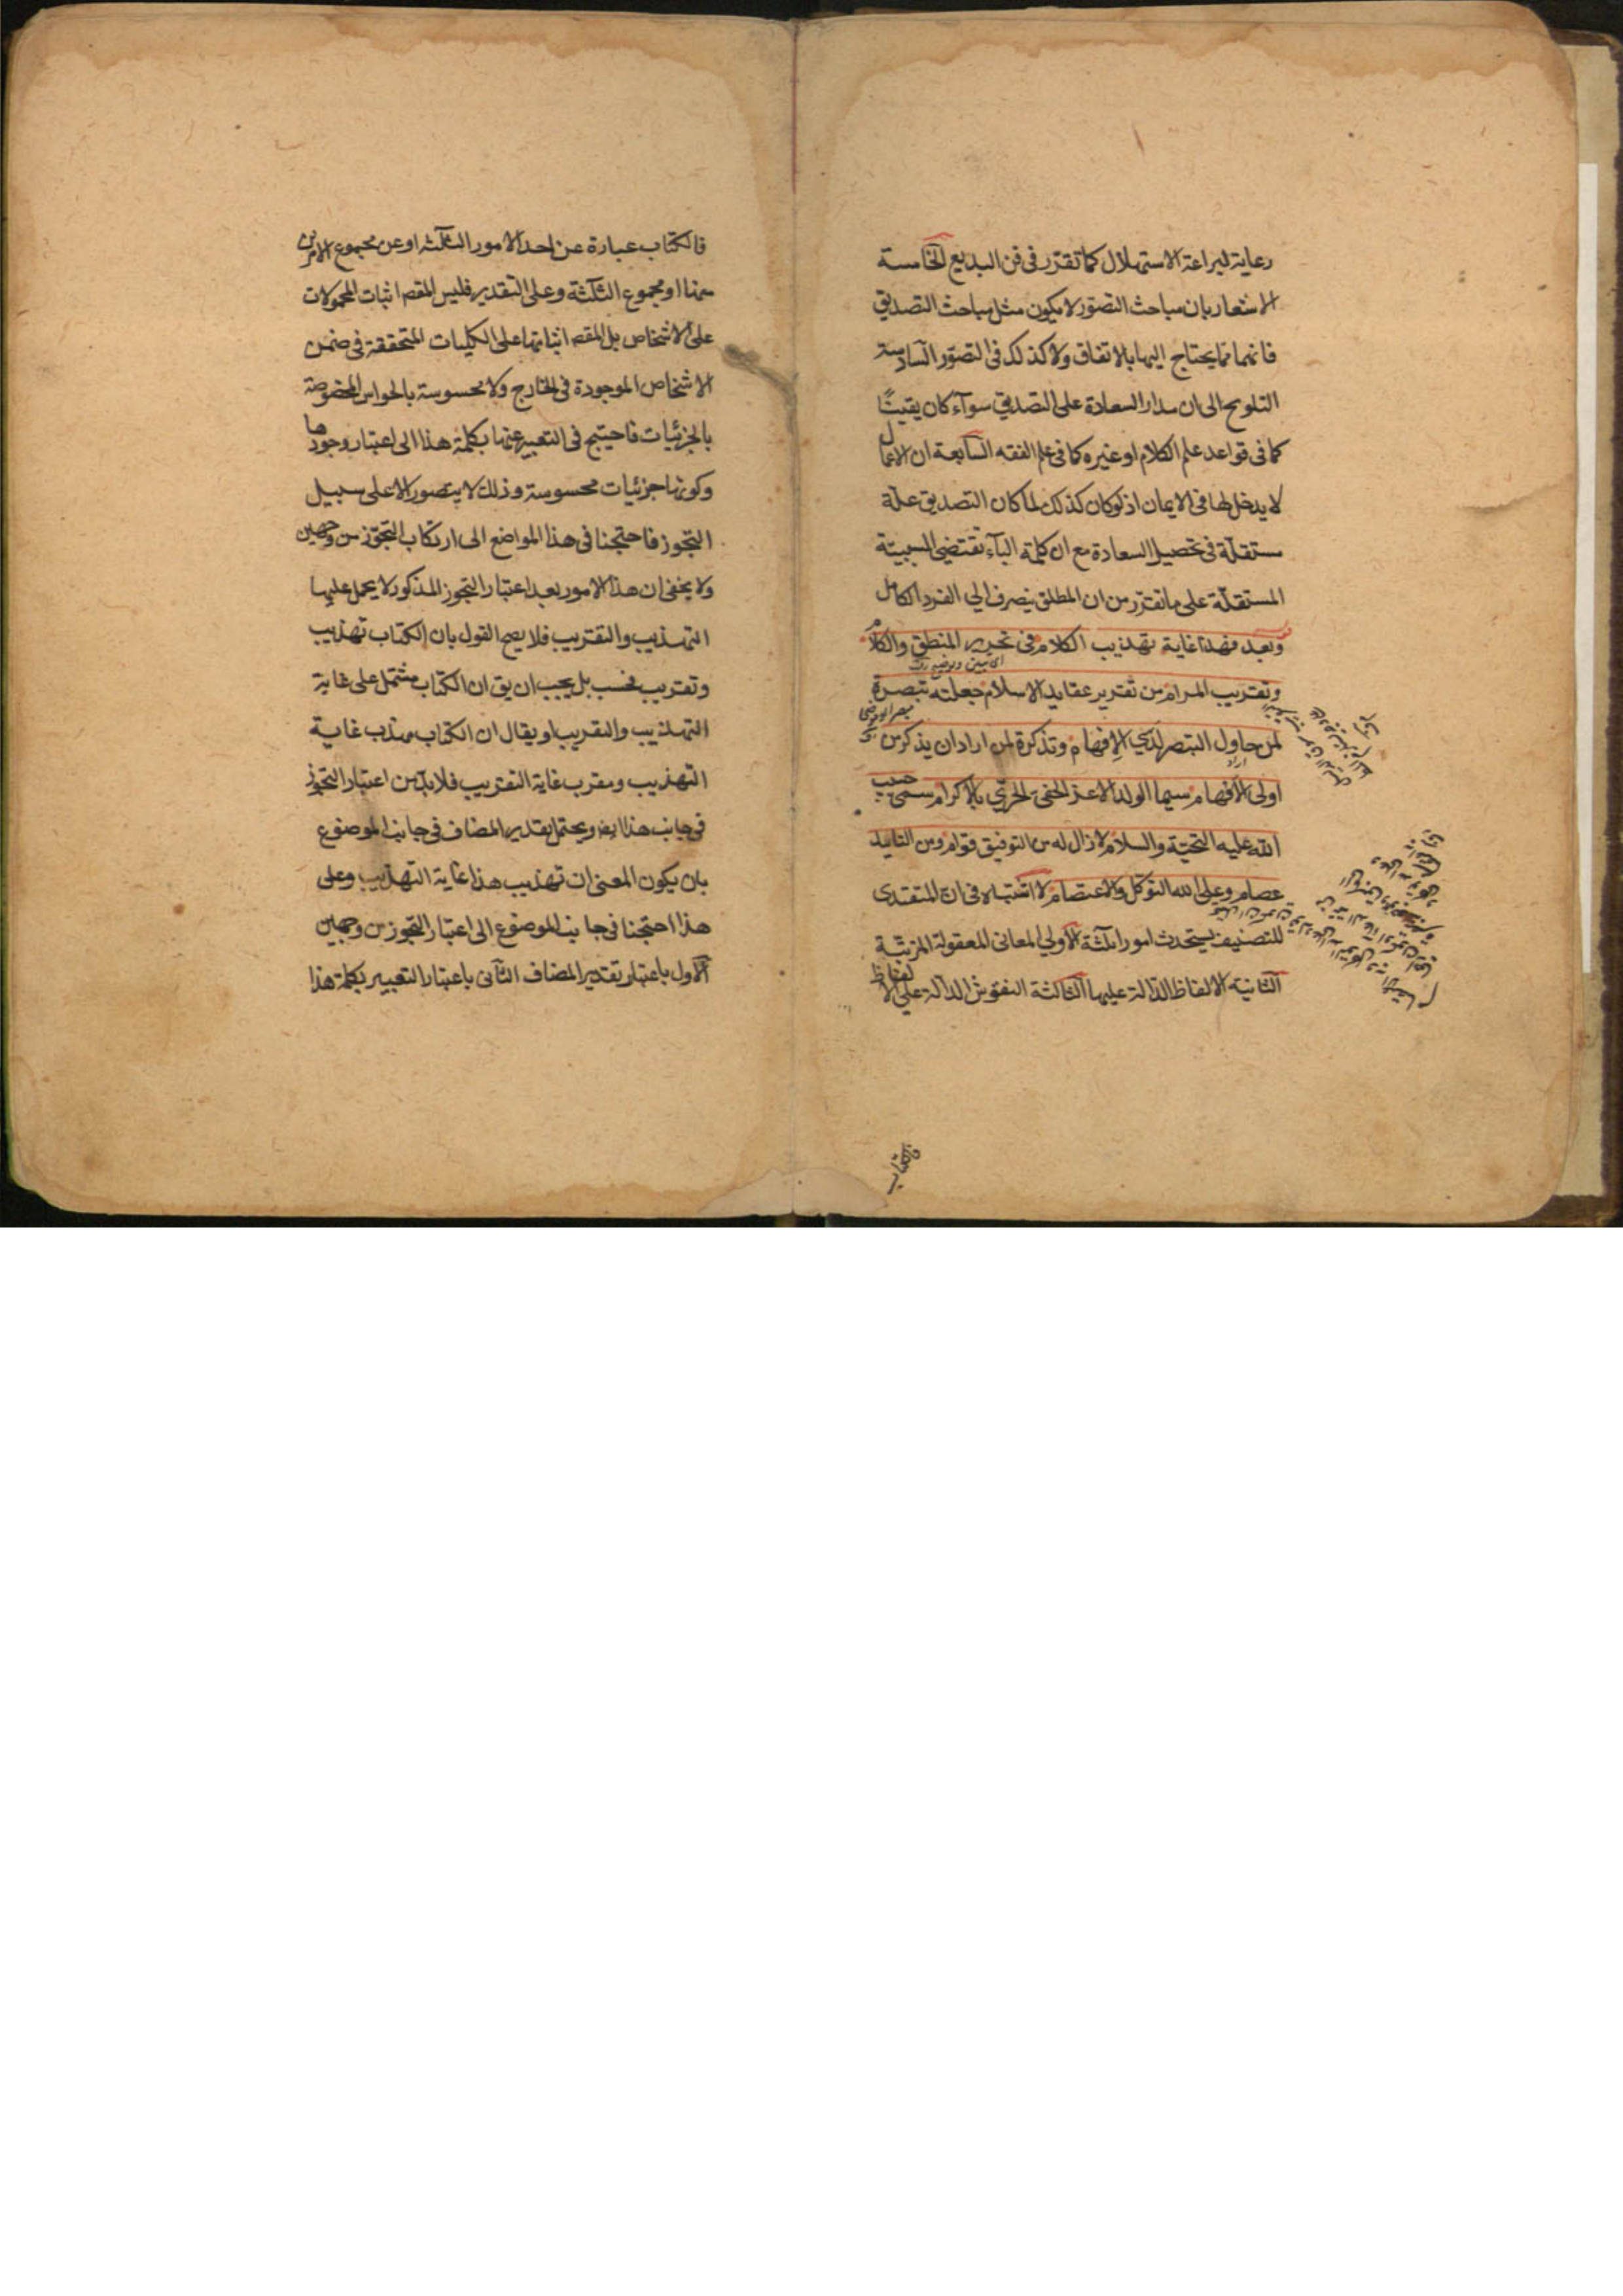 رعاية لبراعة الاستهلال كما تقرر فى فن البديع الخامسة
الاشعار بان مباحث التصور لا يكون مثل مباحث التصديق
فانهما مما يحتاج اليها بالاتفاق ولا كذلك فى التصور السادسة
التلويح الى ان مدار السعادة على التصديق سوآء كان يقينيًا
كما فى قواعد علم الكلام او غيره كما فى علم الفقه السابعة ان الاعمال
لا يدخل لها فى الايمان اذ لو كان كذلك لما كان التصديق علة
مستقلة فى تحصيل السعادة مع ان كلمة البآء تقتضى السببية
المستقلة على ما تقرر من ان المطلق ينصرف الى الفرد الكامل
وبعد فهذا غاية تهذيب الكلام فى تحرير المنطق والكلام
وتقريب المرام من تقرير عقايد الاسلام جعلته تبصرة
لمن حاول التبصر لدى الافهام وتذكرة لمن اراد ان يذكر من ذوى
اولى الافهام سيما الولد الاعز الحفى الحرى بالاكرام سمى حبيب
الله عليه التحية والسلام لا زال له من التوفيق قوام ومن التاييد
عصام وعلى الله التوكل والاعتصام لا اشتباه فى ان المتقدى
للتصنيف يستحدث امورا ثلثة الاولى المعانى المعقولة المرتبة
الثانية الالفاظ الدالة عليها الثالثة النقوش الدالة على الالفاظ
فالكتاب
فالكتاب عبارة عن احد الامور الثلثه او عن مجموع الامرين
منها او مجموع الثلثة وعلى التقدير فليس المقصد اثبات المحمولات
على الاشخاص بل المقصد اثباتها على الكليات المتحققة فى ضمن
الاشخاص الموجودة فى الخارج ولا محسوسة بالحواس المخصوصة
بالجزئيات فاحتيج فى التعبير عنها بكلمة هذا الى اعتبار وجودها
وكونها جزئيات محسوسة وذلك لا يتصور الا على سبيل
التجوز فاحتجنا فى هذا المواضع الى ارتكاب التجوز من وجهين
ولا يخفى ان هذا الامور بعد اعتبار التجوز المذكور لا يحمل عليها
التهذيب والتقريب فلا يصح القول بان الكتاب تهذيب
وتقريب فحسب بل يجب ان يق ان الكتاب مشتمل على غاية
التهذيب والتقريب او يقال ان الكتاب مهذب غاية
التهذيب ومقرب غاية التقريب فلا بد من اعتبار التجوز
فى جانب هذا ايضا ويحتمل تقدير المضاف فى جانب الموضوع
بان يكون المعنى ان تهذيب هذا غاية التهذيب وعلى
هذا احتجنا فى جانب الموضوع الى اعتبار التجوز من وجهين
الاول باعتبار تقدير المضاف الثانى باعتبار التعبير بكلمة هذا